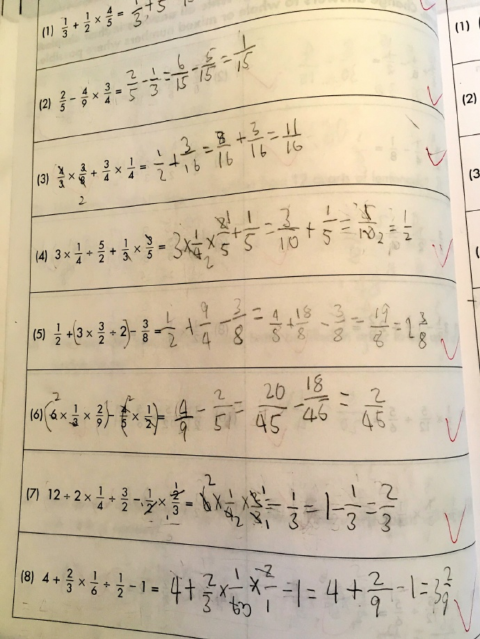 (1) 1/3 + 1/2 × 4/5 = 1/3 + 5
(1)
(2) 2/5 - 4/9 × 3/4 = 2/5 - 1/3 = 6/15 - 5/15 = 1/15
(2)
(3) 4/3 × 3/8 + 3/4 × 1/4 = 1/2 + 3/16 = 8/16 + 3/16 = 11/16
2
(3
(4) 3 × 1/4 ÷ 5/2 + 1/3 × 3/5 = 3 × 1/4 2 × 2/5 1 + 1/5 = 3/10 + 1/5 = 5/10 2 = 1/2
(5) 1/2 + (3 × 3/2 ÷ 2) - 3/8 = 1/2 + 9/4 - 3/8 = 4/8 + 18/8 - 3/8 = 19/8 = 2 3/8
(6) (6 2 × 1/3 × 2/9) - (4/5 2 × 1/2) = 4/9 - 2/5 = 20/45 - 18/46 = 2/45
(7) 12 ÷ 2 × 1/4 ÷ 3/2 - 1/2 × 2/3 = 6 2 × 1/4 2 × 2/3 1 1 - 1/3 = 1 - 1/3 = 2/3
(8) 4 + 2/3 × 1/6 ÷ 1/2 - 1 = 4 + 2/3 × 1/6 3 × 2/1 - 1 = 4 + 2/9 - 1 = 3 2/9